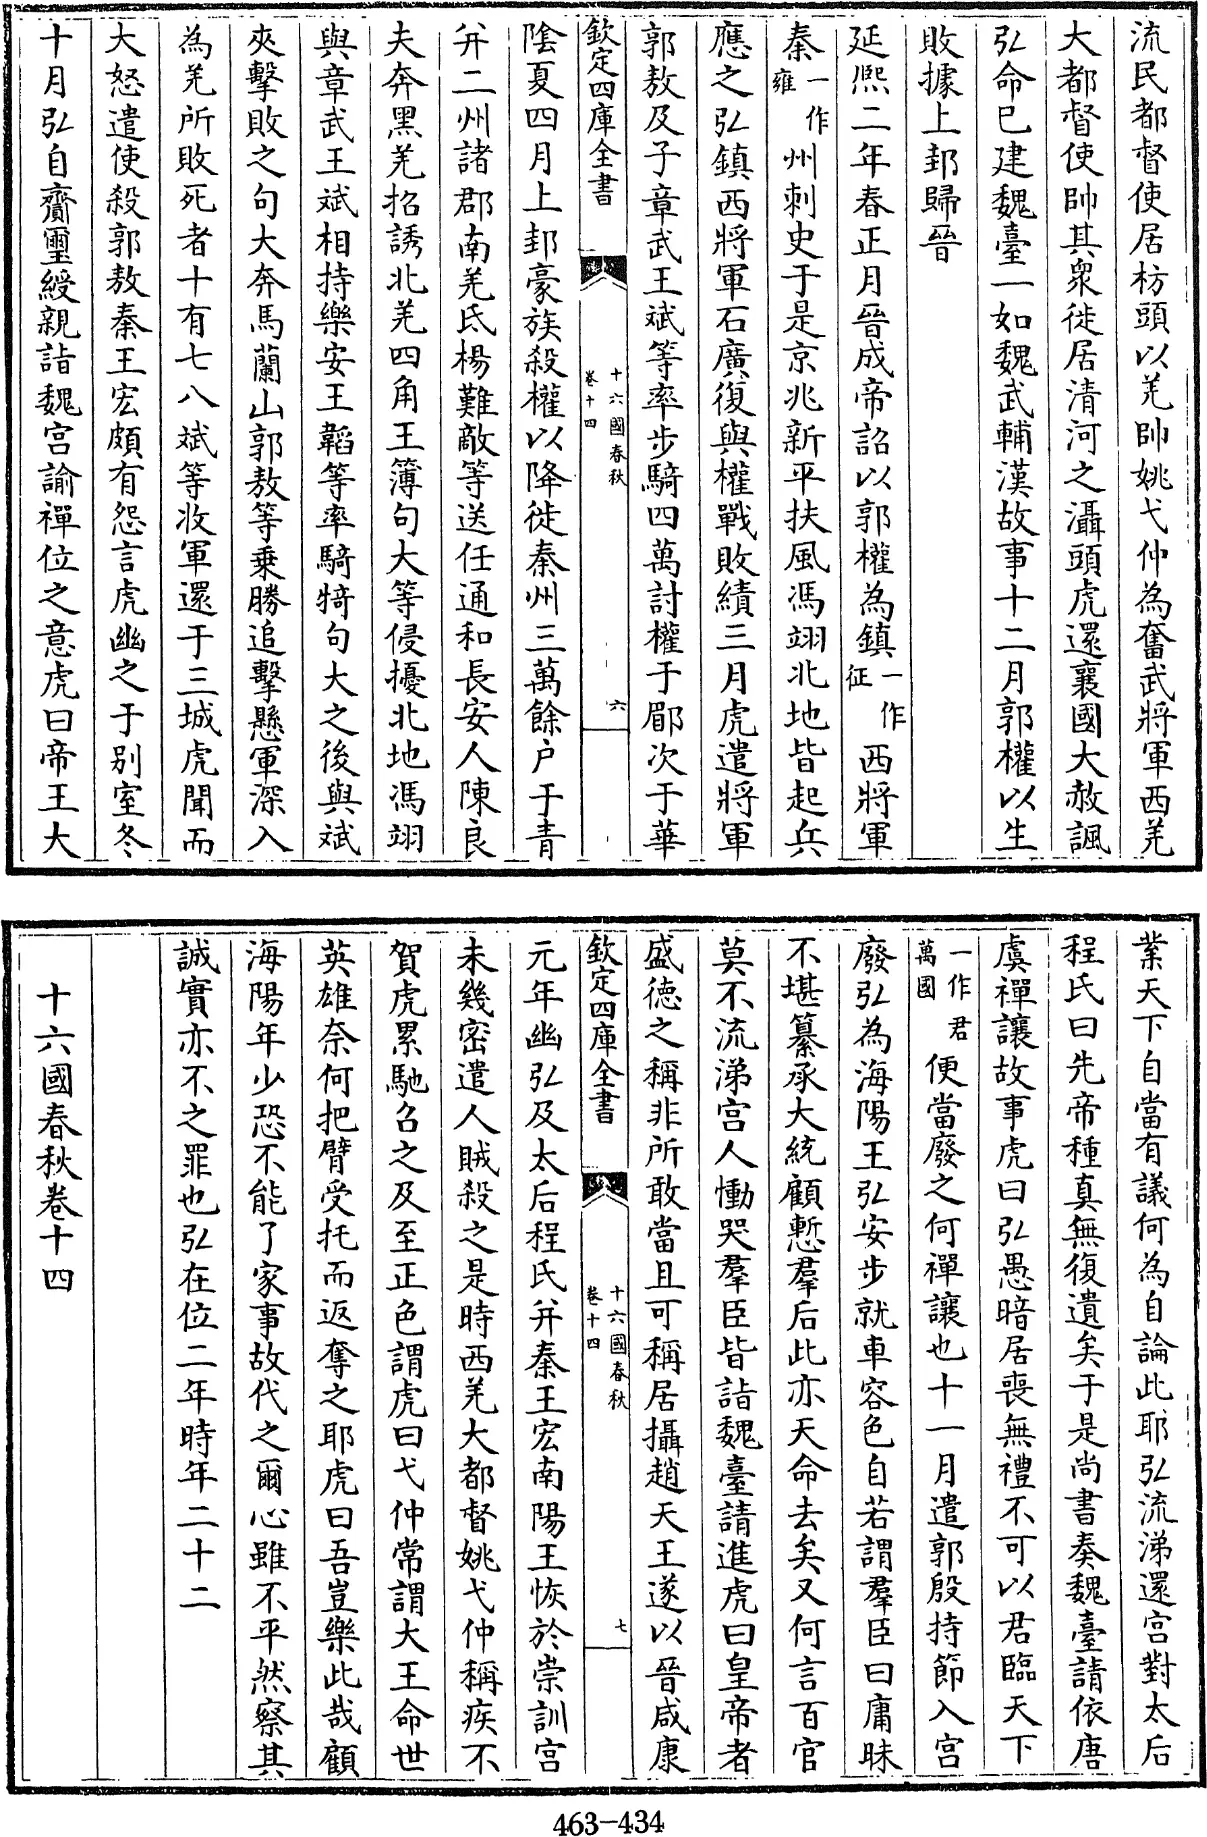 流民都督使居枋頭以羌帥姚弋仲為奮武將軍西羌
大都督使帥其衆徙居清河之灄頭虎還襄國大赦諷
弘命已建魏臺一如魏武輔漢故事十二月郭權以生
敗據上邽歸晉
延熈二年春正月晉成帝詔以郭權為鎮一作征西將軍
秦一作雍州刺史于是京兆新平扶風馮翊北地皆起兵
應之弘鎮西將軍石廣復與權戰敗績三月虎遣將軍
郭敖及子章武王斌等率步騎四萬討權于郿次于華
欽定四庫全書
十六國春秋
卷十四
六
陰夏四月上邽豪族殺權以降徙秦州三萬餘户于青
并二州諸郡南羌氐楊難敵等送任通和長安人陳良
夫奔黑羌招誘北羌四角王簿句大等侵擾北地馮翊
與章武王斌相持樂安王韜等率騎犄句大之後與斌
夾擊敗之句大奔馬蘭山郭敖等乗勝追擊懸軍深入
為羌所敗死者十有七八斌等收軍還于三城虎聞而
大怒遣使殺郭敖秦王宏頗有怨言虎幽之于别室冬
十月弘自齎璽綬親詣魏宫諭禪位之意虎曰帝王大
業天下自當有議何為自論此耶弘流涕還宫對太后
程氏曰先帝種真無復遺矣于是尚書奏魏臺請依唐
虞禪讓故事虎曰弘愚暗居喪無禮不可以君臨天下
一作君萬國便當廢之何禪讓也十一月遣郭殷持節入宫
廢弘為海陽王弘安步就車容色自若謂羣臣曰庸昧
不堪纂承大統顧慙羣后此亦天命去矣又何言百官
莫不流涕宫人慟哭羣臣皆詣魏臺請進虎曰皇帝者
盛徳之稱非所敢當且可稱居攝趙天王遂以晉咸康
欽定四庫全書
十六國春秋
卷十四
七
元年幽弘及太后程氏并秦王宏南陽王恢於崇訓宫
未幾密遣人賊殺之是時西羌大都督姚弋仲稱疾不
賀虎累馳召之及至正色謂虎曰弋仲常謂大王命世
英雄奈何把臂受托而返奪之耶虎曰吾豈樂此哉顧
海陽年少恐不能了家事故代之爾心雖不平然察其
誠實亦不之罪也弘在位二年時年二十二
十六國春秋卷十四
463-434